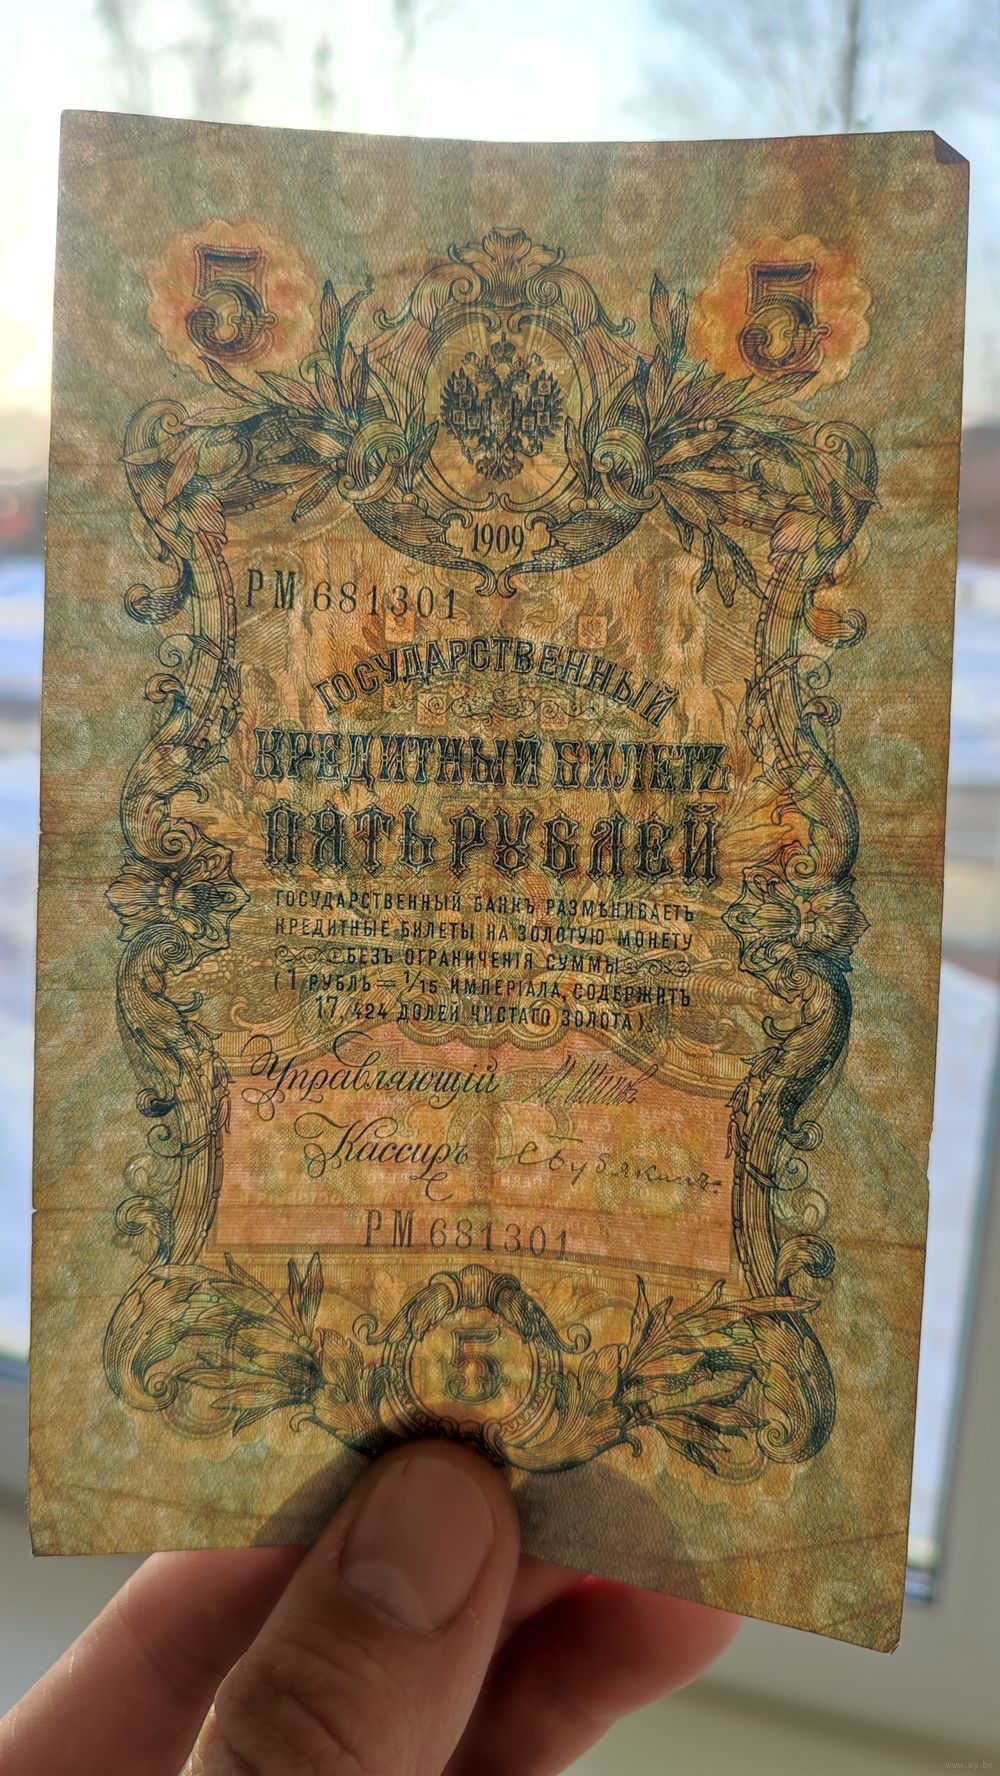 5 5
1909
РМ 681301
ГОСУДАРСТВЕННЫЙ
КРЕДИТНЫЙ БИЛЕТЪ
ПЯТЬ РУБЛЕЙ
ГОСУДАРСТВЕННЫЙ БАНКЪ РАЗМѢНИВАЕТЪ
КРЕДИТНЫЕ БИЛЕТЫ НА ЗОЛОТУЮ МОНЕТУ
БЕЗЪ ОГРАНИЧЕНІЯ СУММЫ
(1 РУБЛЬ = 1/15 ИМПЕРІАЛА, СОДЕРЖИТЪ
17,424 ДОЛЕЙ ЧИСТАГО ЗОЛОТА).
Управляющій И. Шиповъ
Кассиръ Бубякинъ
РМ 681301
5
www.ay.by